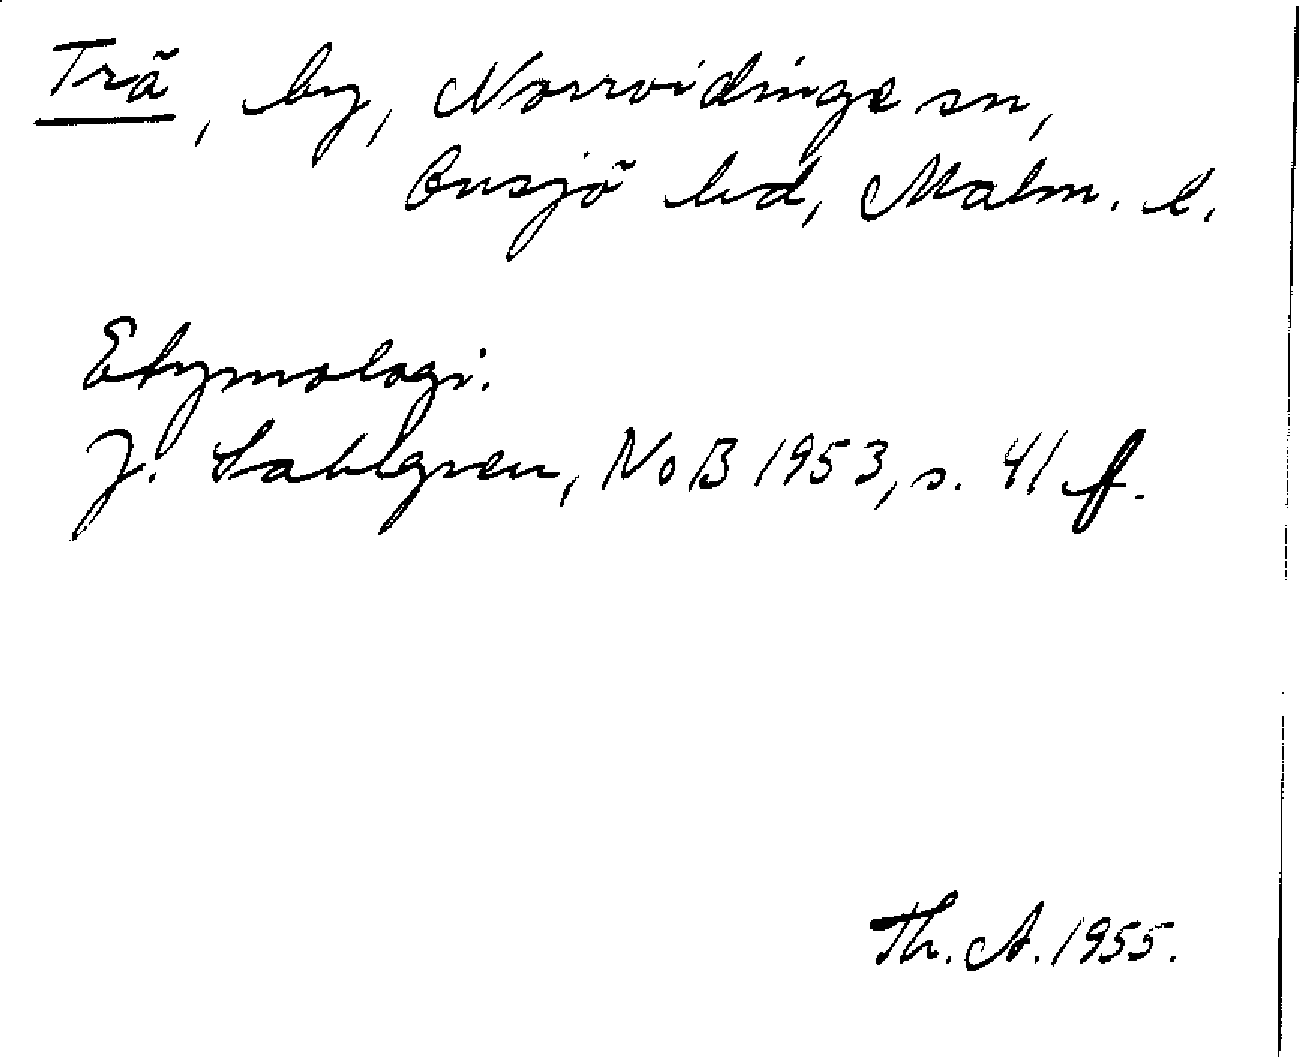 Trä, by, Norrvidinge sn,
Onsjö hd, Malm. l.
Etymologi.
J. Sahlgren, NoB 1953, s. 41 f.
Th. A. 1955.